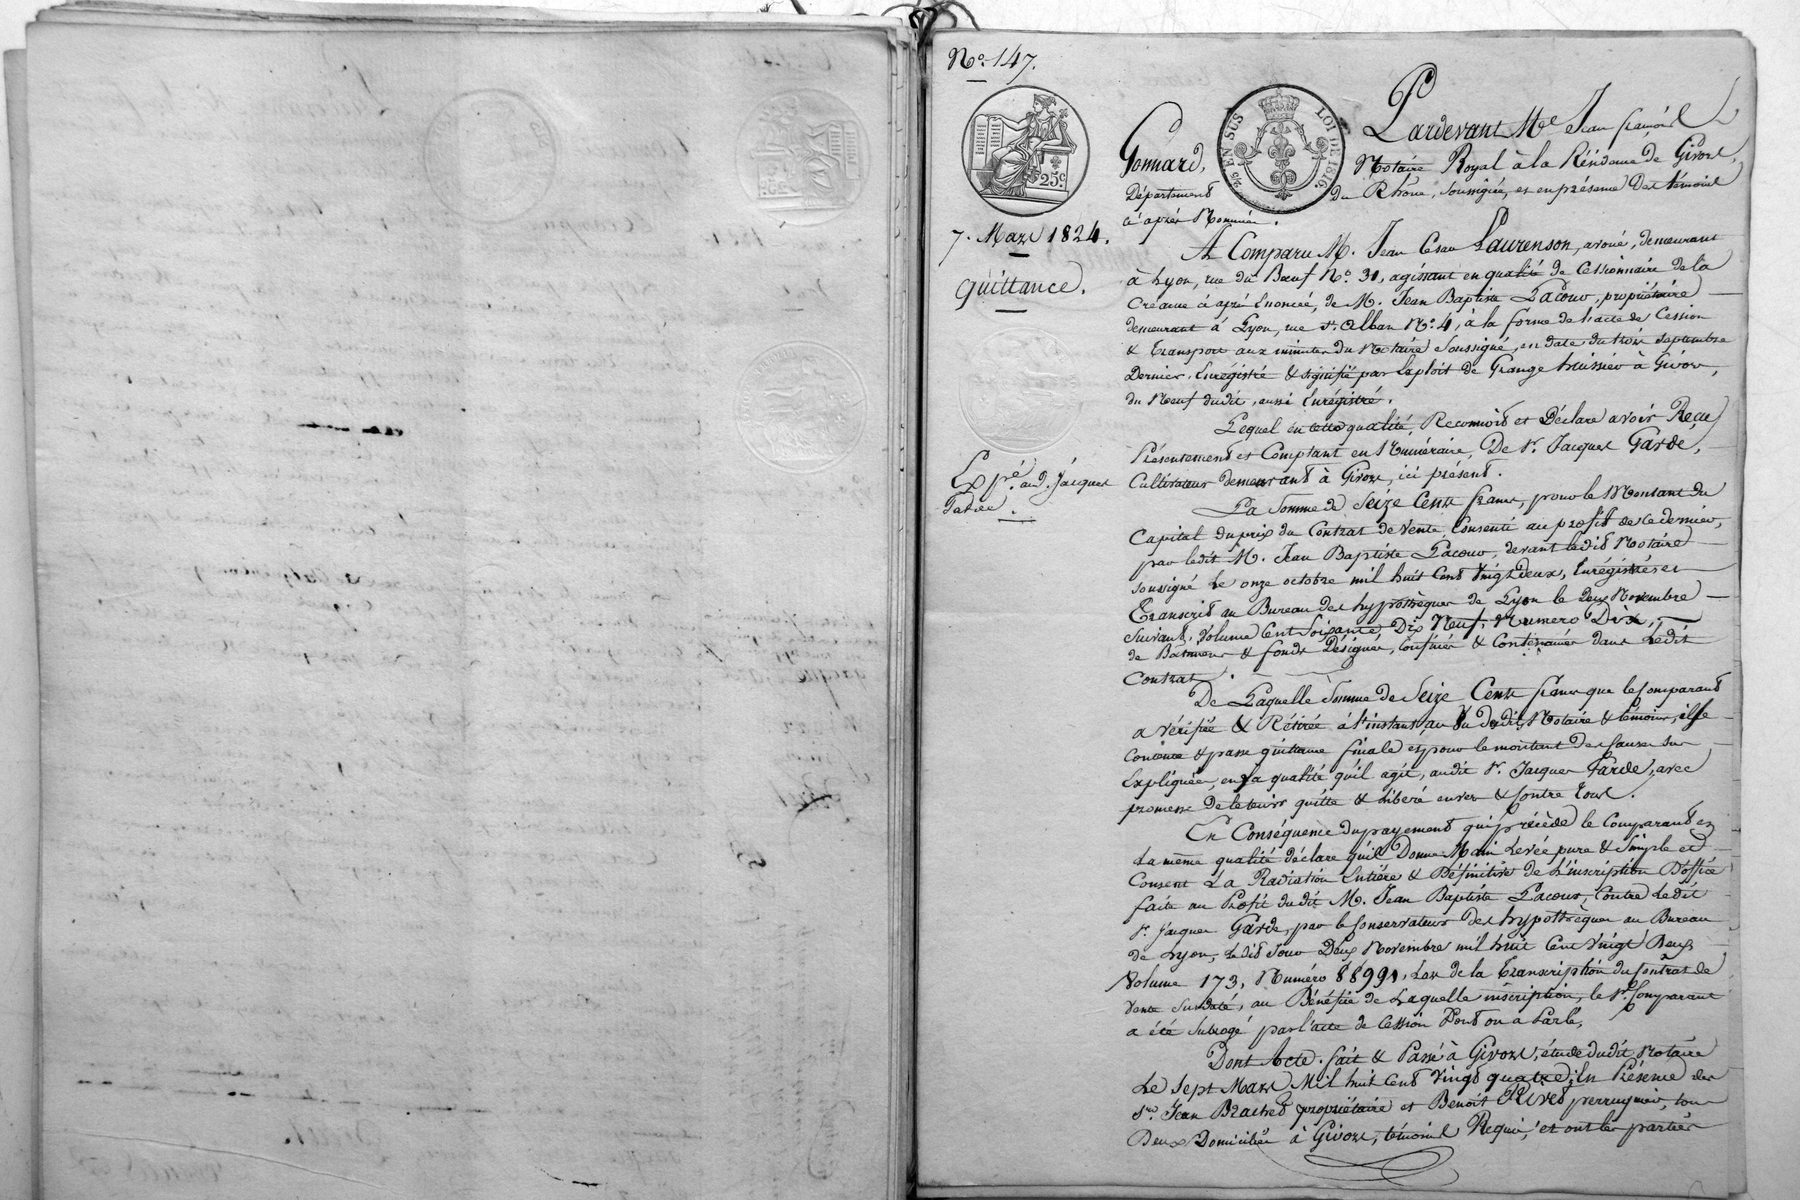 No. 147.
25 EN SUS
LOI DE 1816.
25c.
7. Mars 1824.
Quittance.
Expé. aud. Jacques
Garde.
Pardevant Me Jean François
Gonnard, Notaire Royal à la Résidence de Givors,
Département du Rhône, soussigné, et en présence des témoins
ci après Nommés.
A Comparu M. Jean César Laurenson, avoué, demeurant
à Lyon, rue du Bœuf No. 31, agissant en qualité de Cessionnaire de la
Créance ci après Énoncée, de M. Jean Baptiste Lacour, propriétaire
demeurant à Lyon, rue St. Alban No. 4, à la forme de l'acte de Cession
& Transport aux minutes du Notaire soussigné, en date du trois septembre
Dernier, Enrégistré & signifié par Exploit de Grange huissier à Givors,
du Neuf dudit, aussi Enrégistré.
Lequel en cette qualité, Reconnoit et Déclare avoir Reçu
Présentement et Comptant en Numéraire, De Sr. Jacques Garde,
Cultivateur demeurant à Givors, ici présent.
La Somme de Seize Cents francs, pour le Montant du
Capital du prix du Contrat de Vente Consenti au profit de ce dernier,
par ledit M. Jean Baptiste Lacour, devant ledit Notaire
soussigné le onze octobre mil huit cent vingt deux, Enrégistré et
Transcrit au Bureau des hypothèques de Lyon le deux Novembre
suivant, Volume Cent Soixante Dix Neuf, Numéro Dix,
de Bâtimens & fonds Désignés, Confinés & Contenancés dans Ledit
Contrat.
De Laquelle Somme de Seize Cents francs que le Comparant
a vérifiée & Rétirée à l'instant, au Vu dudit Notaire & témoins, il se
contente & passe quittance finale et pour le montant des Causes sus
Expliquées, en la qualité qu'il agit, audit Sr. Jacques Garde, avec
promesse de le tenir quitte & Libéré envers & Contre tous.
En Conséquence du payement qui précède le Comparant en
La même qualité déclare qu'il Donne Main Levée pure & Simple et
Consent La Radiation Entière & Définitive de L'inscription D'office
faite au Profit dudit M. Jean Baptiste Lacour, Contre Ledit
Sr. Jacques Garde, par le Conservateur des hypothèques au Bureau
de Lyon, Ledit Jour Deux Novembre mil huit Cent Vingt Deux
Volume 173, Numéro 88991, Lors de la Transcription du Contrat de
Vente Susdaté, au Bénéfice de Laquelle inscription, le Sr. Comparant
a été Subrogé par l'acte de Cession Dont on a Parlé,
Dont Acte. fait & Passé à Givors, étude dudit Notaire
Le Sept Mars Mil huit Cent Vingt quatre, En Présence des
Srs. Jean Brachet propriétaire et Benoit Rivet perruquier, tous
Deux Domiciliés à Givors, témoins Requis, et ont les parties